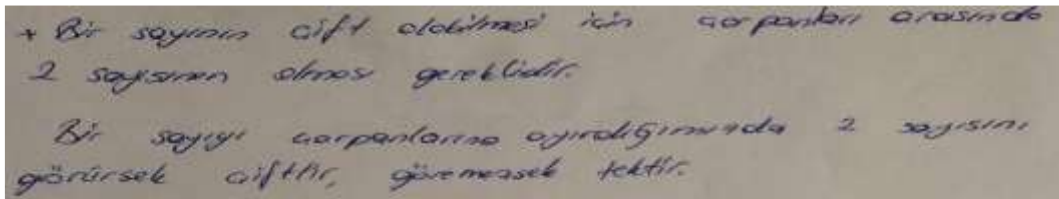 + Bir sayının çift olabilmesi için çarpanları arasında
2 sayısının olması gereklidir.
Bir sayıyı çarpanlarına ayırdığımızda 2 sayısını
görürsek çifttir, göremezsek tektir.